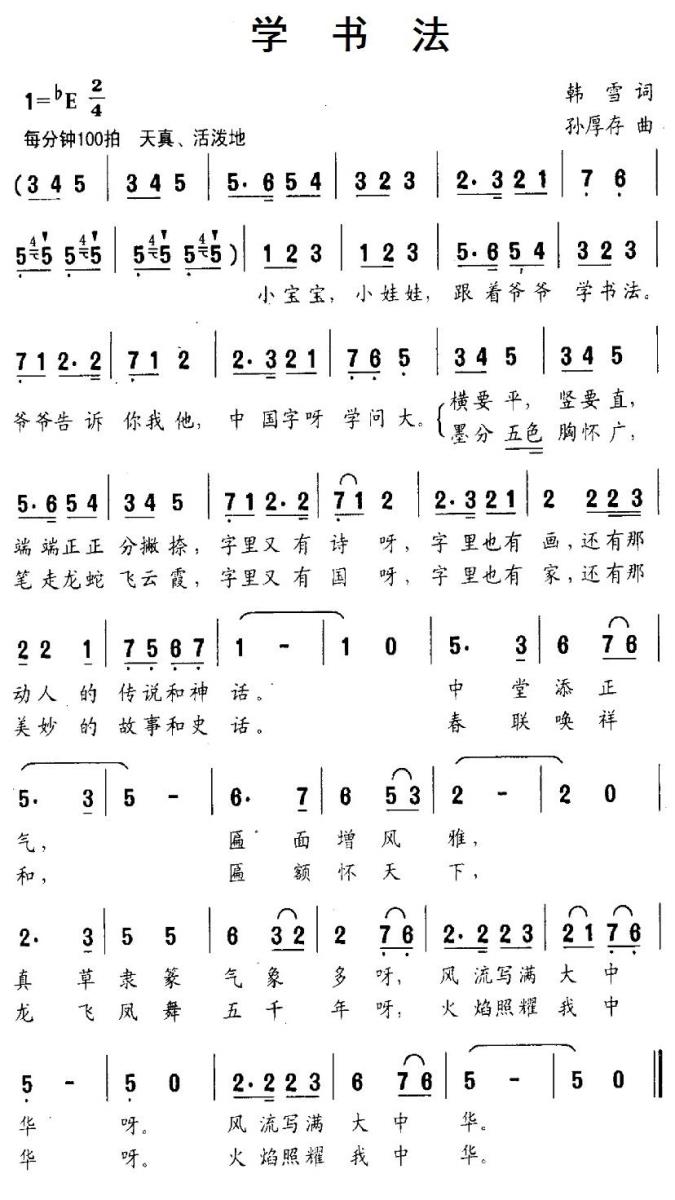 学 书 法
1=♭E 2/4
韩 雪 词
每分钟100拍 天真、活泼地
孙厚存 曲
(3 4 5 | 3 4 5 | 5· 6 5 4 | 3 2 3 | 2· 3 2 1 | 7 6 |
5 5 5 5 | 5 5 5 5 ) | 1 2 3 | 1 2 3 | 5· 6 5 4 | 3 2 3 |
小宝宝, 小娃娃, 跟着爷爷 学书法。
7 1 2· 2 | 7 1 2 | 2· 3 2 1 | 7 6 5 | 3 4 5 | 3 4 5 |
爷爷告诉 你我他, 中国字呀 学问大。
横要平, 竖要直,
墨分五色 胸怀广,
5· 6 5 4 | 3 4 5 | 7 1 2· 2 | 7 1 2 | 2· 3 2 1 | 2 2 2 3 |
端端正正 分撇捺, 字里又有诗 呀, 字里也有 画, 还有那
笔走龙蛇 飞云霞, 字里又有国 呀, 字里也有 家, 还有那
2 2 1 | 7 5 6 7 | 1 - | 1 0 | 5· 3 | 6 7 6 |
动人 的 传说和神 话。 中 堂添正
美妙 的 故事和史 话。 春 联唤祥
5· 3 | 5 - | 6· 7 | 6 5 3 | 2 - | 2 0 |
气, 匾 面增风 雅,
和, 匾 额怀天 下,
2· 3 | 5 5 | 6 3 2 | 2 7 6 | 2· 2 2 3 | 2 1 7 6 |
真 草隶篆 气象 多呀, 风流写满 大中
龙 飞凤舞 五千 年呀, 火焰照耀 我中
5 - | 5 0 | 2· 2 2 3 | 6 7 6 | 5 - | 5 0 ‖
华 呀。 风流写满 大中 华。
华 呀。 火焰照耀 我中 华。